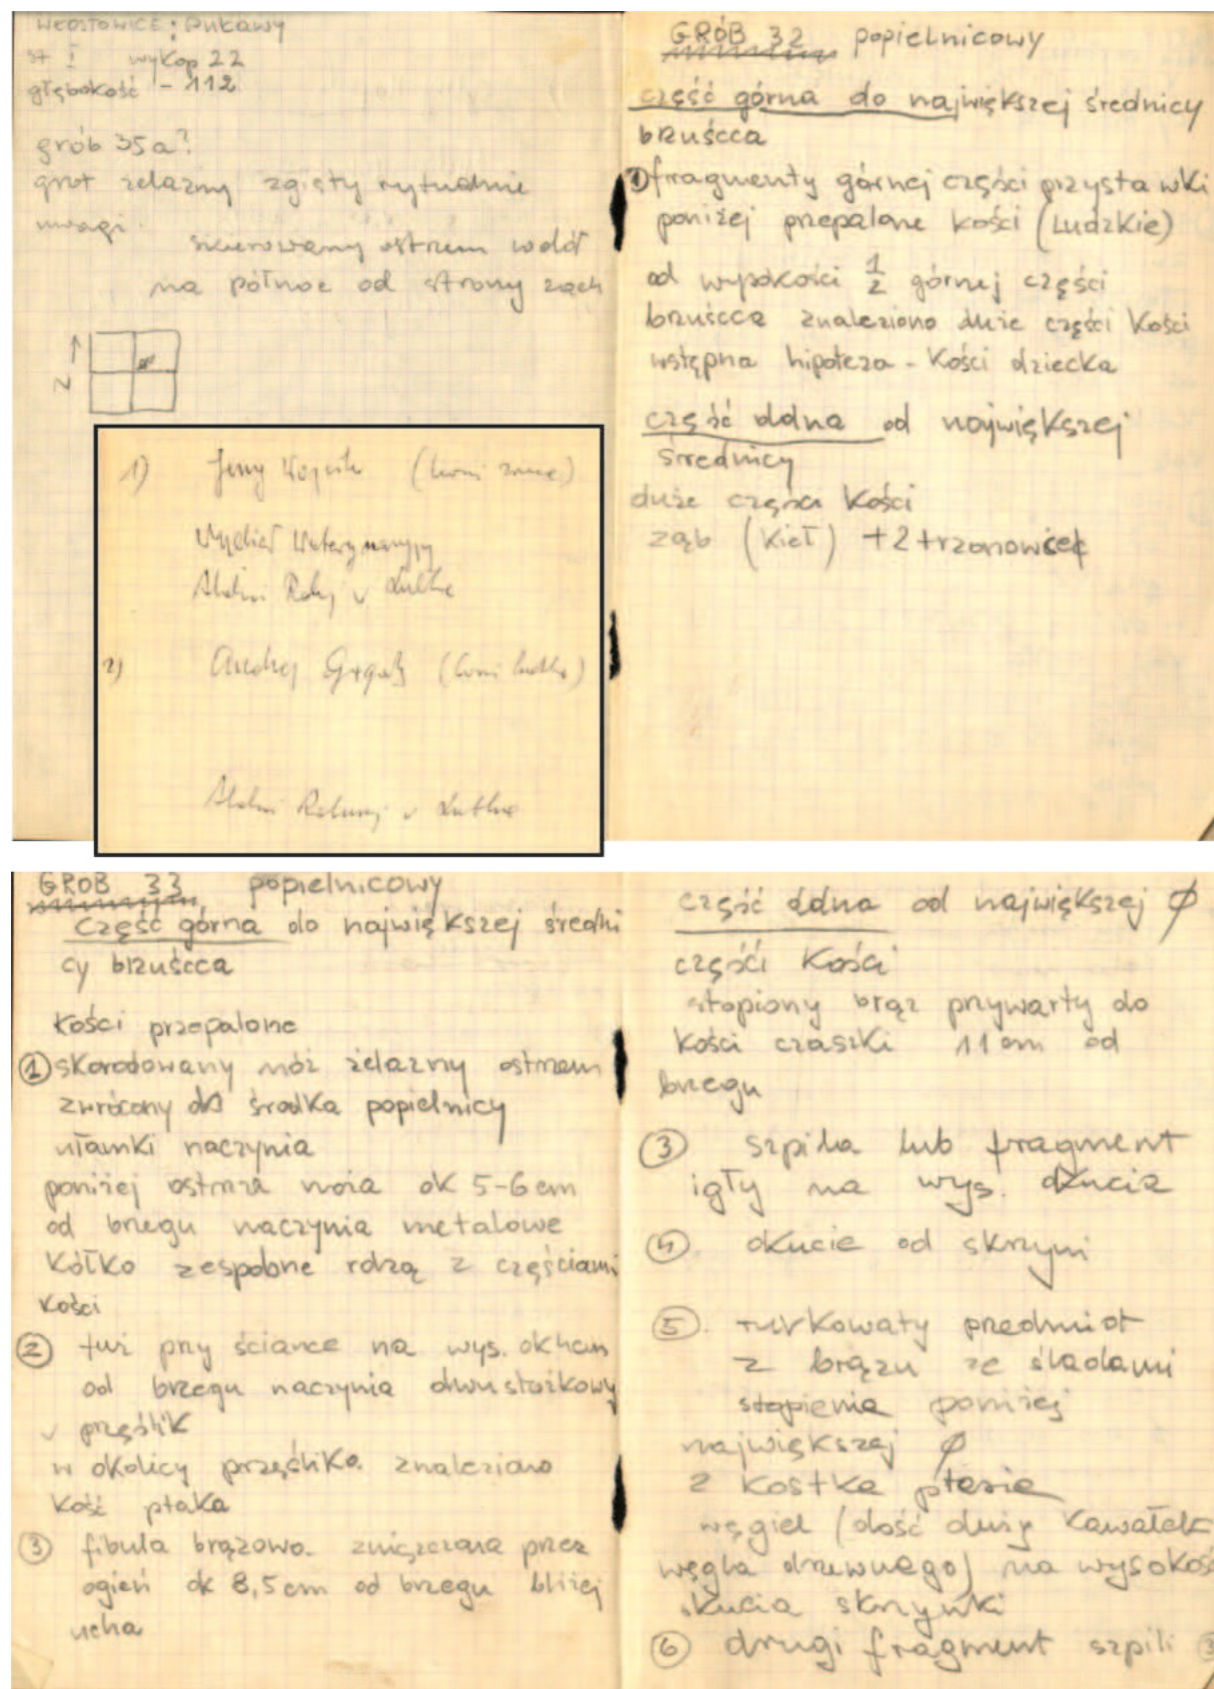 WŁOSTOWICE; Puławy
st I wykop 22
głębokość - 112
grób 35a?
grot żelazny zgięty rytualnie
uwagi
skierowany ostrzem wdół
na północ od strony zach
N
1) Jerzy (kości zwierz)
Wydział Weterynaryjny
Akademii Roln. w Lublinie
2) Andrzej (kości ludzkie)
Akademii Rolniczej w Lublinie
GRÓB 32 popielnicowy
część górna do największej średnicy
brzuśćca
① fragmenty górnej części przystawki
poniżej przepalone kości (Ludzkie)
od wysokości 1/2 górnej części
brzuśćca znaleziono duże części kości
wstępna hipoteza - kości dziecka
część ddna od największej
średnicy
duże części kości
ząb (kieł) +2 trzonowce
GRÓB 33 popielnicowy
część górna do największej średni
cy brzuśćca
kości przepalone
① skorodowany nóż żelazny ostrzem
zwrócony do środka popielnicy
ułamki naczynia
poniżej ostrza noża ok 5-6 cm
od brzegu naczynia metalowe
kółko zespolone rdzą z częściami
kości
② tuż przy ściance na wys.
od brzegu naczynia dwustożkowy
przęślik
w okolicy przęślika znaleziono
kość ptaka
③ fibula brązowa zniszczona przez
ogień ok 8,5cm od brzegu bliżej
ucha
część ddna od największej ϕ
części kości
stopiony brąz przywarty do
kości czaszki 11 cm od
brzegu
③ szpila lub fragment
igły na wys. okucia
④. okucie od skrzyni
⑤. rurkowaty przedmiot
z brązu ze śladami
stopienia poniżej
największej ϕ
2 kostka ptasia
węgiel (dość duży kawałek
węgla drzewnego) na wysokoś
okucia skrzynki
⑥ drugi fragment szpili ③